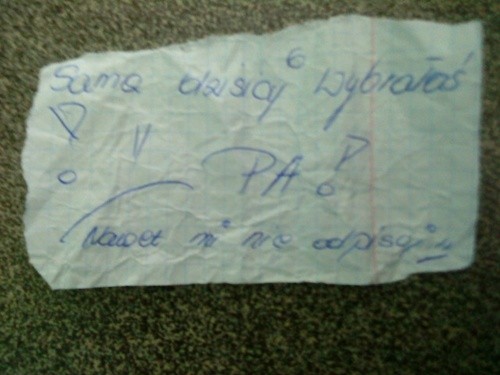 Sama dzisiaj wybrałaś
!
PA!
Nawet mi nie odpisuj!!